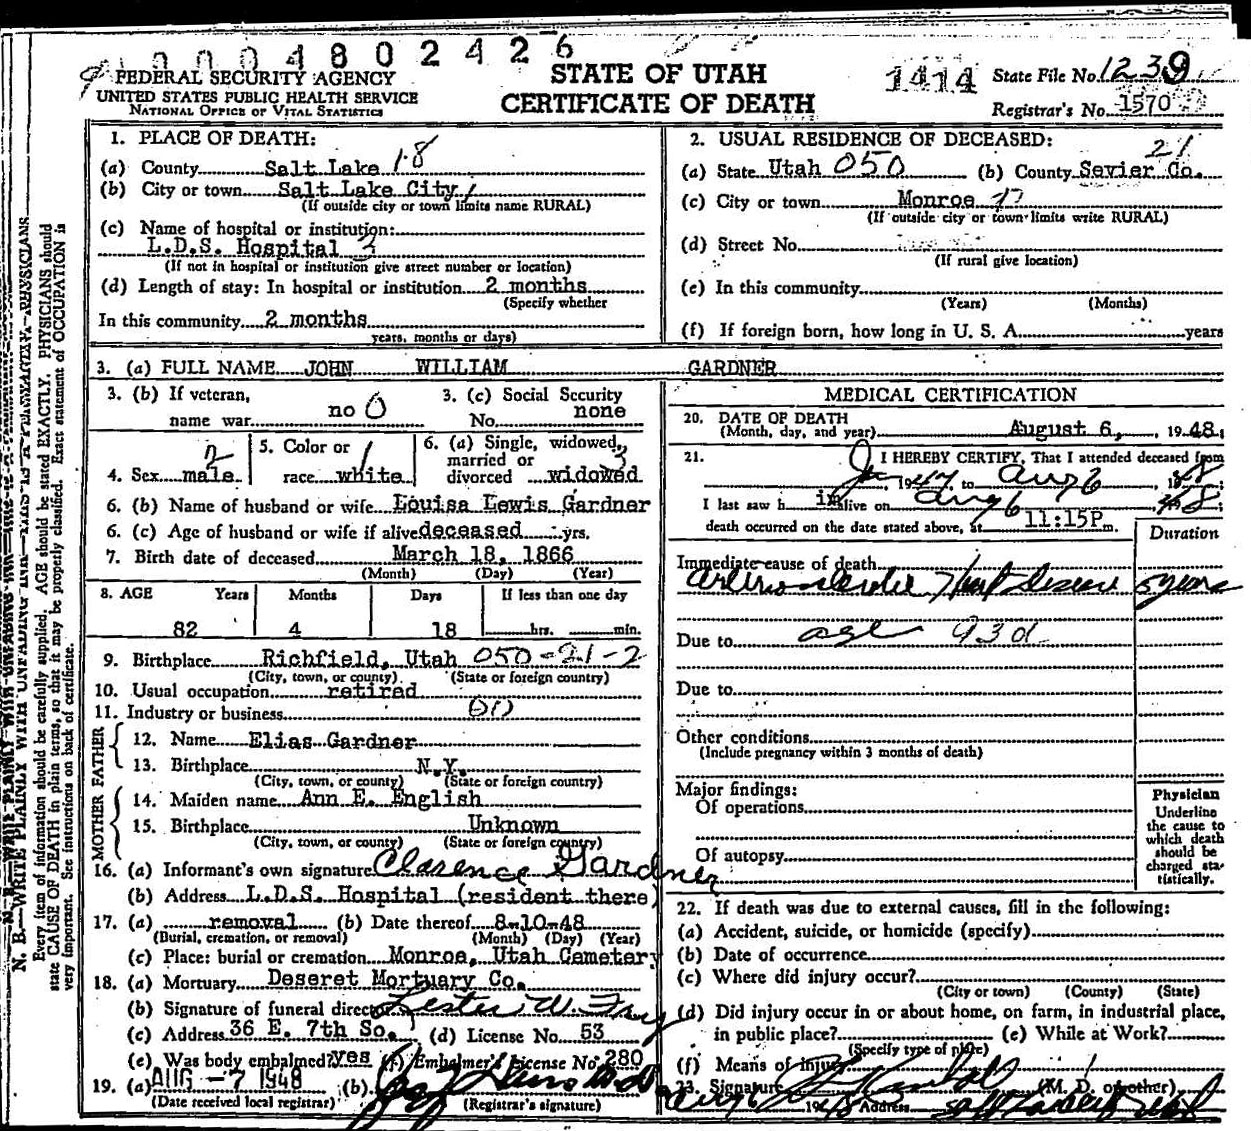 0004802426
FEDERAL SECURITY AGENCY
UNITED STATES PUBLIC HEALTH SERVICE
NATIONAL OFFICE OF VITAL STATISTICS
STATE OF UTAH
CERTIFICATE OF DEATH
1414
State File No. 1239
Registrar's No. 1570
1. PLACE OF DEATH:
(a) County Salt Lake 18
(b) City or town Salt Lake City
(If outside city or town limits name RURAL)
(c) Name of hospital or institution:
L.D.S. Hospital 3
(If not in hospital or institution give street number or location)
(d) Length of stay: In hospital or institution 2 months
(Specify whether
In this community 2 months
years, months or days)
2. USUAL RESIDENCE OF DECEASED:
21
(a) State Utah 050 (b) County Sevier Co.
(c) City or town Monroe
(If outside city or town limits write RURAL)
(d) Street No.
(If rural give location)
(e) In this community
(Years) (Months)
(f) If foreign born, how long in U. S. A. years
3. (a) FULL NAME JOHN WILLIAM GARDNER
3. (b) If veteran,
name war no 0
3. (c) Social Security
No. none
4. Sex male 2
5. Color or
race white 1
6. (a) Single, widowed,
married or
divorced widowed 3
6. (b) Name of husband or wife Louisa Lewis Gardner
6. (c) Age of husband or wife if alive deceased yrs.
7. Birth date of deceased March 18, 1866
(Month) (Day) (Year)
8. AGE Years Months Days If less than one day
82 4 18 hrs. min.
9. Birthplace Richfield, Utah 050-21-2
(City, town, or county) (State or foreign country)
10. Usual occupation retired
11. Industry or business
FATHER
12. Name Elias Gardner
13. Birthplace N.Y.
(City, town, or county) (State or foreign country)
MOTHER
14. Maiden name Ann E. English
15. Birthplace Unknown
(City, town, or county) (State or foreign country)
16. (a) Informant's own signature Clarence Gardner
(b) Address L.D.S. Hospital (resident there)
17. (a) removal (b) Date thereof 8-10-48
(Burial, cremation, or removal) (Month) (Day) (Year)
(c) Place: burial or cremation Monroe, Utah Cemetery
18. (a) Mortuary Deseret Mortuary Co.
(b) Signature of funeral director Lester W.
(c) Address 36 E. 7th So. (d) License No. 53
(e) Was body embalmed? yes (f) Embalmer's License No. 280
19. (a) AUG -7 1948 (b)
(Date received local registrar) (Registrar's signature)
MEDICAL CERTIFICATION
20. DATE OF DEATH
(Month, day, and year) August 6, 1948;
21. I HEREBY CERTIFY, That I attended deceased from
Jan 1947, to Aug 6 1948;
I last saw him alive on Aug 6 1948;
death occurred on the date stated above, at 11:15P m.
Duration
Immediate cause of death
Heart Disease 5 years
Due to age 93d
Due to
Other conditions
(Include pregnancy within 3 months of death)
Major findings:
Of operations
Of autopsy
Physician
Underline
the cause to
which death
should be
charged sta-
tistically.
22. If death was due to external causes, fill in the following:
(a) Accident, suicide, or homicide (specify)
(b) Date of occurrence
(c) Where did injury occur?
(City or town) (County) (State)
(d) Did injury occur in or about home, on farm, in industrial place,
in public place? (e) While at Work?
(Specify type of place)
(f) Means of injury
23. Signature (M. D. or other)
Aug 6 1948 Address Salt Lake City Utah
N. B.—WRITE PLAINLY WITH UNFADING INK—THIS IS A PERMANENT
Every item of information should be carefully supplied. AGE should be stated EXACTLY. PHYSICIANS should
state CAUSE OF DEATH in plain terms, so that it may be properly classified. Exact statement of OCCUPATION is
very important. See instructions on back of certificate.